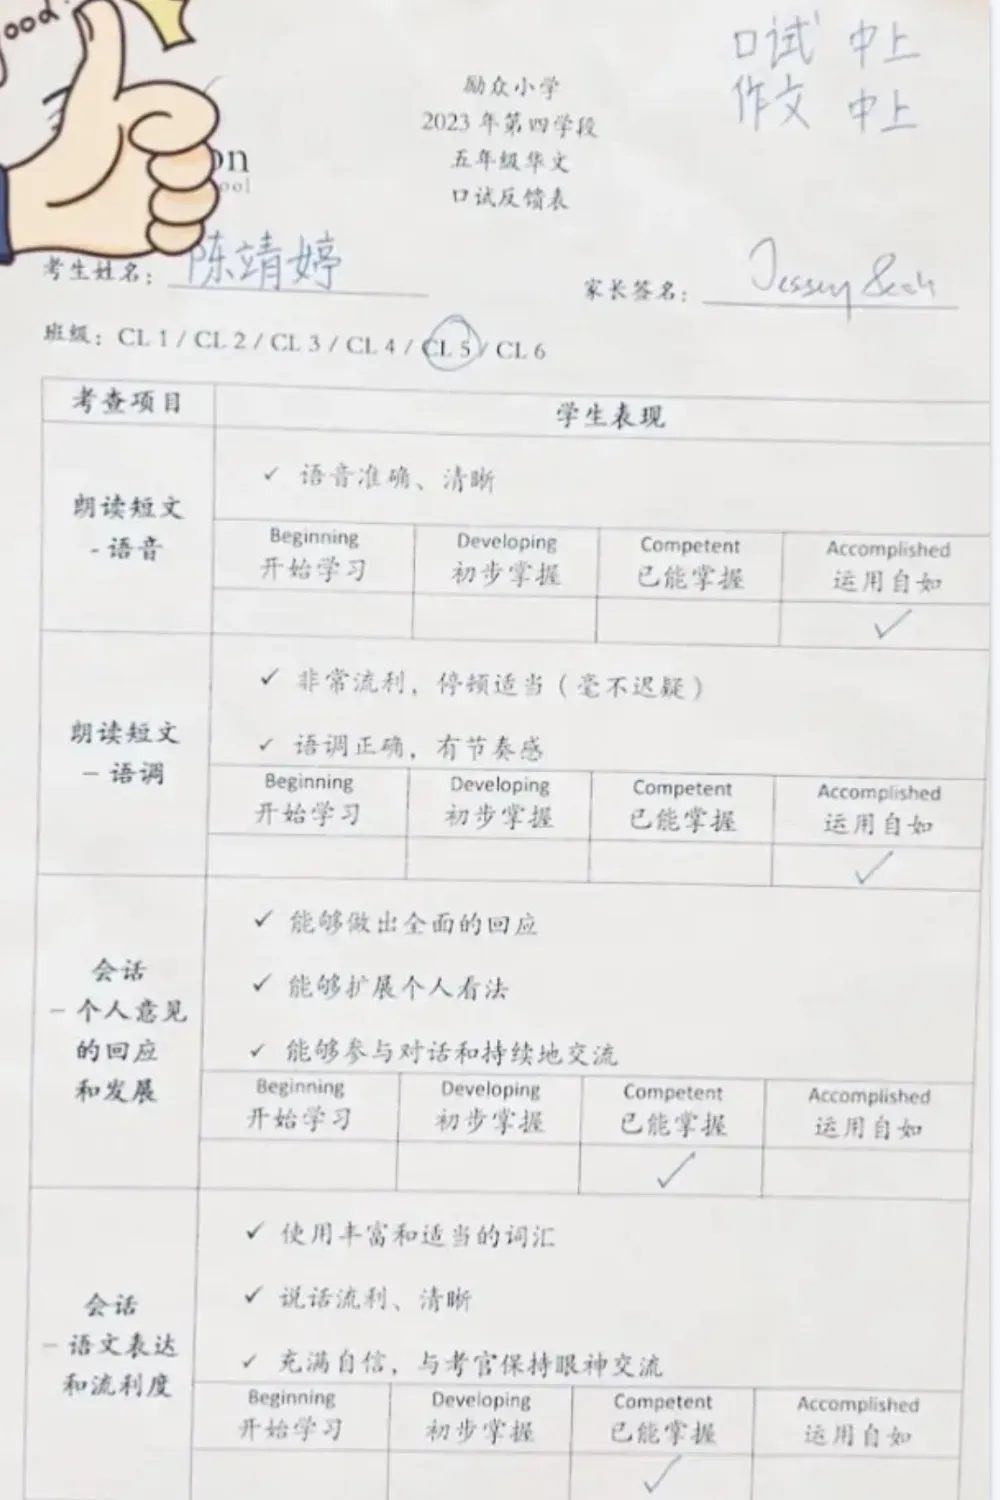 ood!
口试 中上
作文 中上
励众小学
2023 年第四学段
五年级华文
口试反馈表
on
ool
考生姓名： 陈靖婷
家长签名：
班级：CL 1 / CL 2 / CL 3 / CL 4 / CL 5 / CL 6
考查项目 学生表现
朗读短文
- 语音
✓ 语音准确、清晰
Beginning Developing Competent Accomplished
开始学习 初步掌握 已能掌握 运用自如
✓
朗读短文
– 语调
✓ 非常流利，停顿适当（毫不迟疑）
✓ 语调正确，有节奏感
Beginning Developing Competent Accomplished
开始学习 初步掌握 已能掌握 运用自如
✓
会话
– 个人意见
的回应
和发展
✓ 能够做出全面的回应
✓ 能够扩展个人看法
✓ 能够参与对话和持续地交流
Beginning Developing Competent Accomplished
开始学习 初步掌握 已能掌握 运用自如
✓
会话
– 语文表达
和流利度
✓ 使用丰富和适当的词汇
✓ 说话流利、清晰
✓ 充满自信，与考官保持眼神交流
Beginning Developing Competent Accomplished
开始学习 初步掌握 已能掌握 运用自如
✓